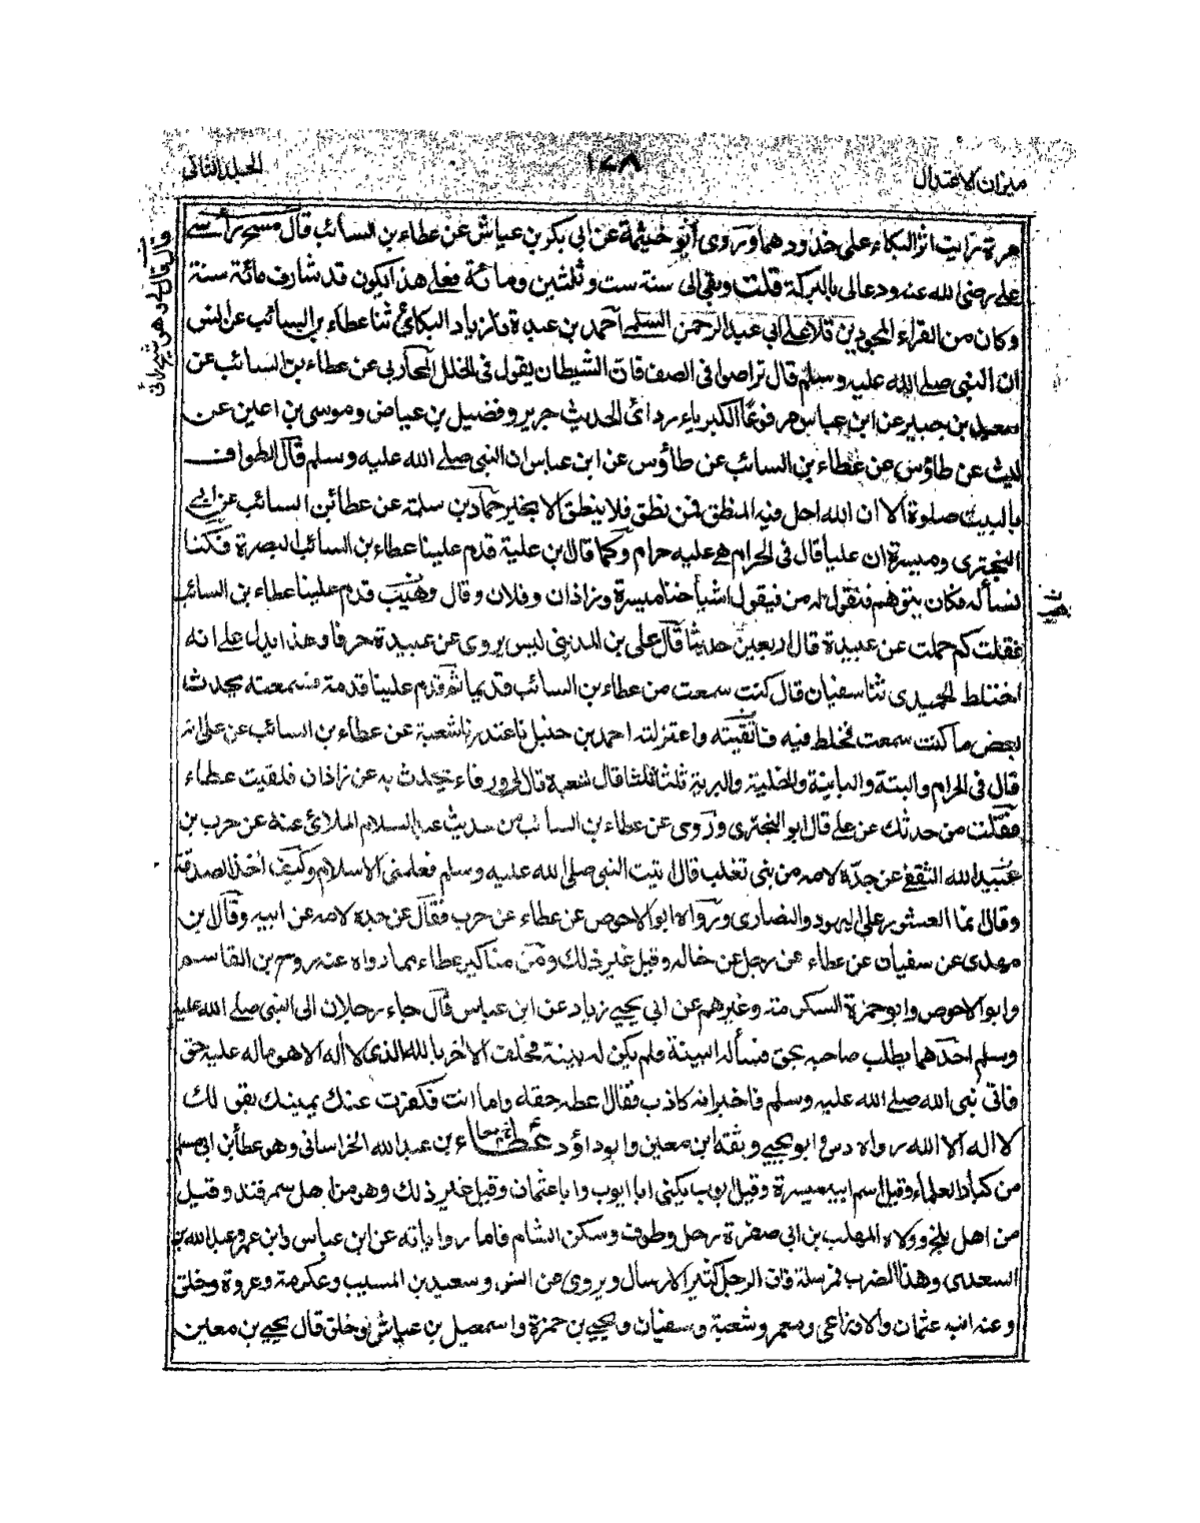 ميزان الاعتدال
١٤٨
الجلد الثاني
مرة رايت اثر البكاء على خدودهما وروى أبو خيثمة عن ابي بكر بن عياش عن عطاء بن السائب قال مسح رأسے
علے رضى الله عنه ودعالى بالبركة قلت وبقى الى سنة ست وثلثين ومائة فعلے هذا يكون قد شارف مائة سنة
وكان من القراء المجودين تلا علے ابي عبد الرحمن السلمے أحمد بن عبدة نا زياد البكائي ثنا عطاء بن السائب عن انس
ان النبى صلے الله عليه وسلم قال تراصوا فى الصف فان الشيطان يقوم فى الخلل المحاربى عن عطاء بن السائب عن
سعيد بن جبير عن ابن عباس مرفوعًا الكبرياء ردائى الحديث جرير وفضيل بن عياض وموسى بن اعين عن
ليث عن طاؤس عن عطاء بن السائب عن طاؤس عن ابن عباس ان النبى صلے الله عليه وسلم قال الطواف
بالبيت صلوة الا ان الله احل فيه المنطق فمن نطق فلا ينطق الا بخير حماد بن سلمة عن عطائبن السائب عن ابے
البخترى وميسرة ان عليا قال فى الحرام هے عليه حرام وكما قال بن علية قدم علينا عطاء بن السائب البصرة فكنا
نسأله فكان يتوهم فنقول له من فيقول اشياخنا ميسرة وزاذان وفلان وقال وهيب قدم علينا عطاء بن السائب
فقلت كم حملت عن عبيدة قال اربعين حديثا قال على بن المدينى ليس يروى عن عبيدة حرفا وهذا يدل علے انه
اختلط الحميدى ثنا سفيان قال كنت سمعت من عطاء بن السائب قديما ثم قدم علينا قدمة فسمعته يحدث
ببعض ما كنت سمعت فخلط فيه فاتقيته واعتزلته احمد بن حنبل نا غندر نا شعبة عن عطاء بن السائب عن على انه
قال فى الحرام والبتة والباينة والخلية والبرية ثلثا ثلثا قال شعبة قال لى ورقاء يحدث به عن زاذان فلقيت عطاء
فقلت من حدثك عن علے قال ابو البخترى وروى عن عطاء بن السائب من حديث عبد السلام الملائى عنه عن حرب بن
عبيد الله الثقفے عن جدّه لامه من بنى تغلب قال تيت النبى صلے الله عليه وسلم فعلمنى الاسلام وكيف اخذ الصدقة
وقال انما العشور على اليهود والنصارى ورواه ابو الاحوص عن عطاء عن حرب فقال عن جده لامه عن ابيه وقال بن
مهدى عن سفيان عن عطاء عن رجل عن خاله وقيل غير ذلك ومن مناكير عطاء مما رواه عنه روح بن القاسم
وابو الاحوص وابو حمزة السكرى منه وغيرهم عن ابى يحيے زياد عن ابن عباس قال جاء رجلان الى النبى صلے الله عليه
وسلم احدهما يطلب صاحبه بحق فسأله البينة فلم يكن له بينة فحلف الاخر بالله الذى لا اله الا هو ماله عليه حق
فاتى نبى الله صلے الله عليه وسلم فاخبر انه كاذب فقال اعطه حقه واما انت فكفرت عنك يمينك بقولك
لا اله الا الله رواه د س وابو يحيے وثقه ابن معين وابو داؤد عطاء بن عبد الله الخراسانى وهو عطأ بن ابى مسلم
من كبار العلماء وقيل اسم ابيه ميسرة وقيل ايوب يكنى ابا ايوب وابا عثمان وقيل غير ذلك وهو من اهل سمرقند وقيل
من اهل بلخ وولاه المهلب بن ابى صفرة رحل وطوف وسكن الشام فاما رواياته عن ابن عباس وابن عمرو عبد الله بن
السعدى وهذا الضرب فمرسلة فان الرجل كثير الارسال ويروى عن انس وسعيد بن المسيب وعكرمة وعروة وخلق
وعنه ابنه عثمان والاوزاعى ومعمر وشعبة وسفيان ويحيے بن حمزة واسمعيل بن عياش وخلق قال يحيے بن معين